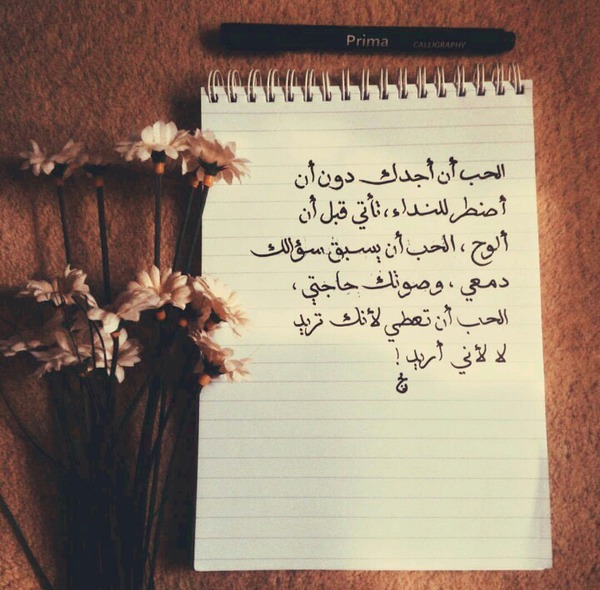 Prima CALLIGRAPHY
الحب أن أجدك دون أن
أضطر للنداء، تأتي قبل أن
ألوح، الحب أن يسبق سؤالك
دمعي، وصوتك حاجتي،
الحب أن تعطي لأنك تريد
لا لأني أريد!